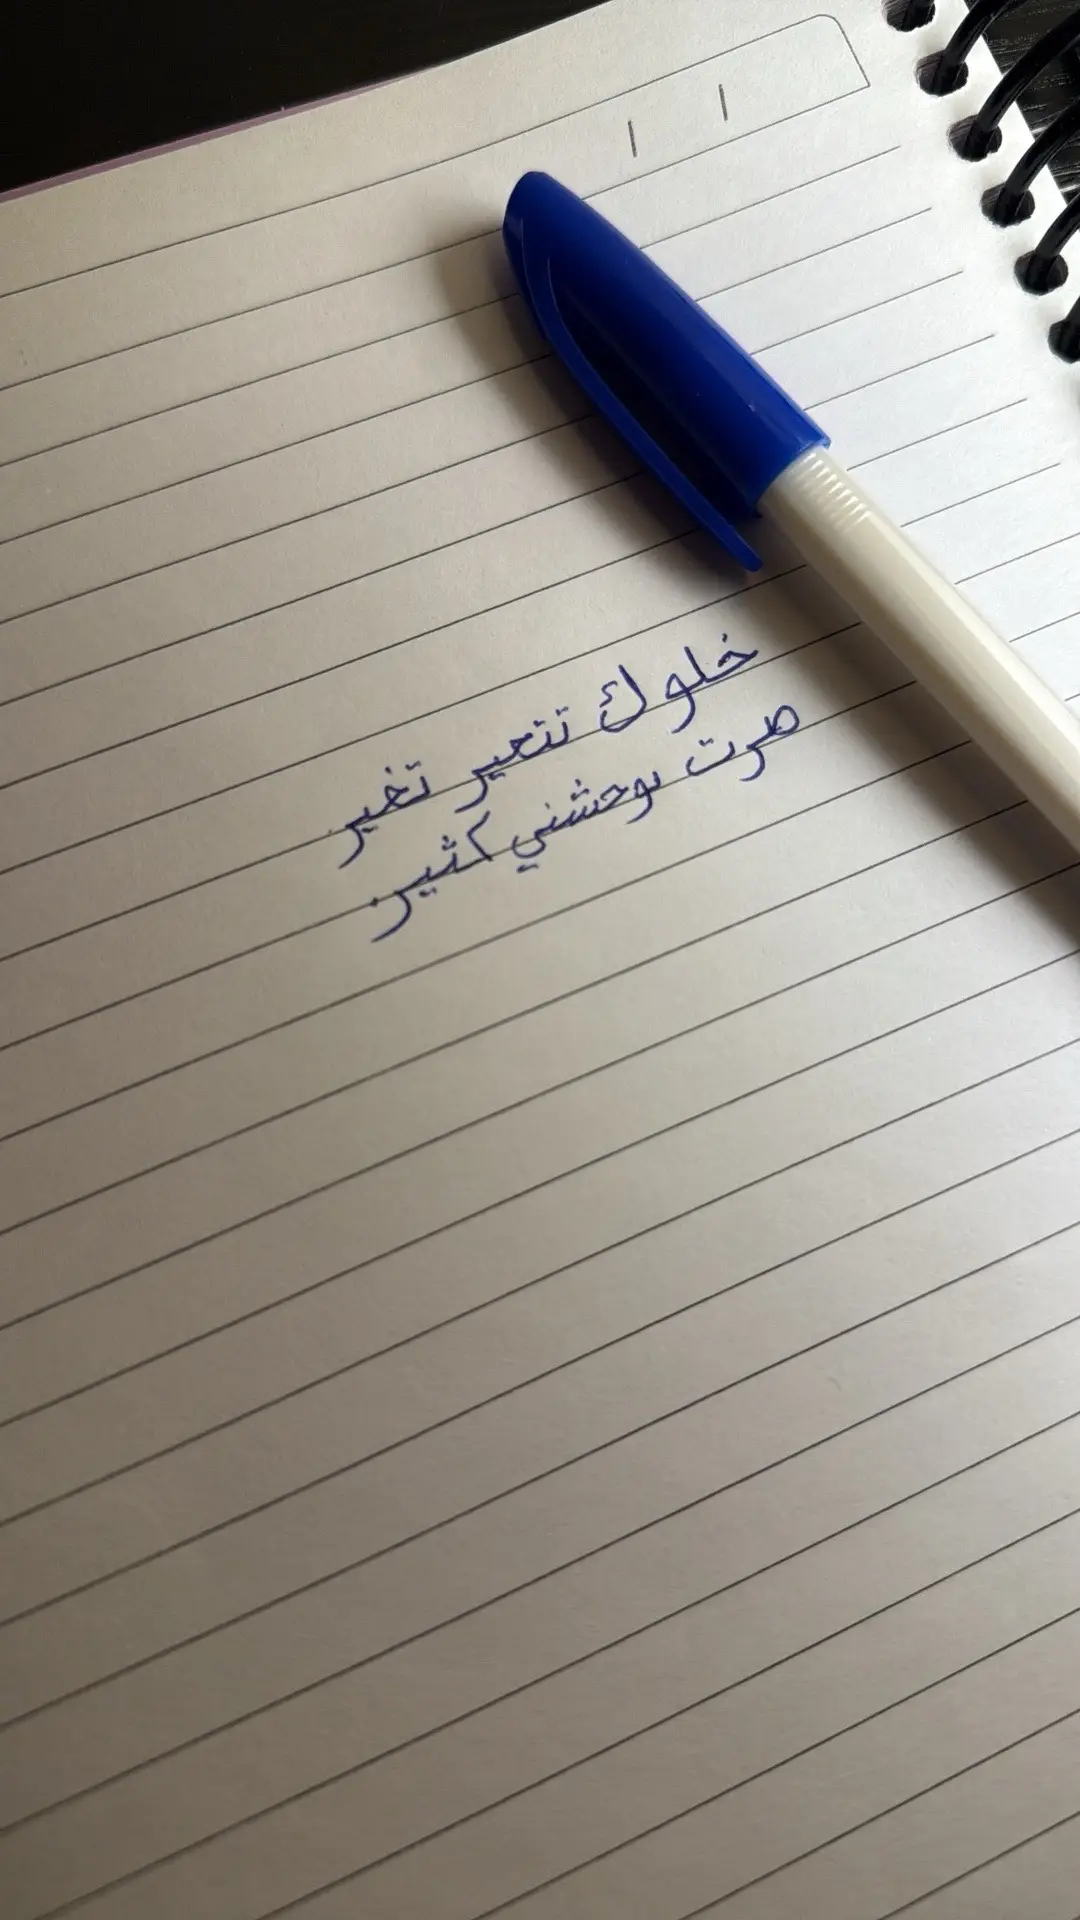 خلوك تتحير تخير
صرت توحشني كثير